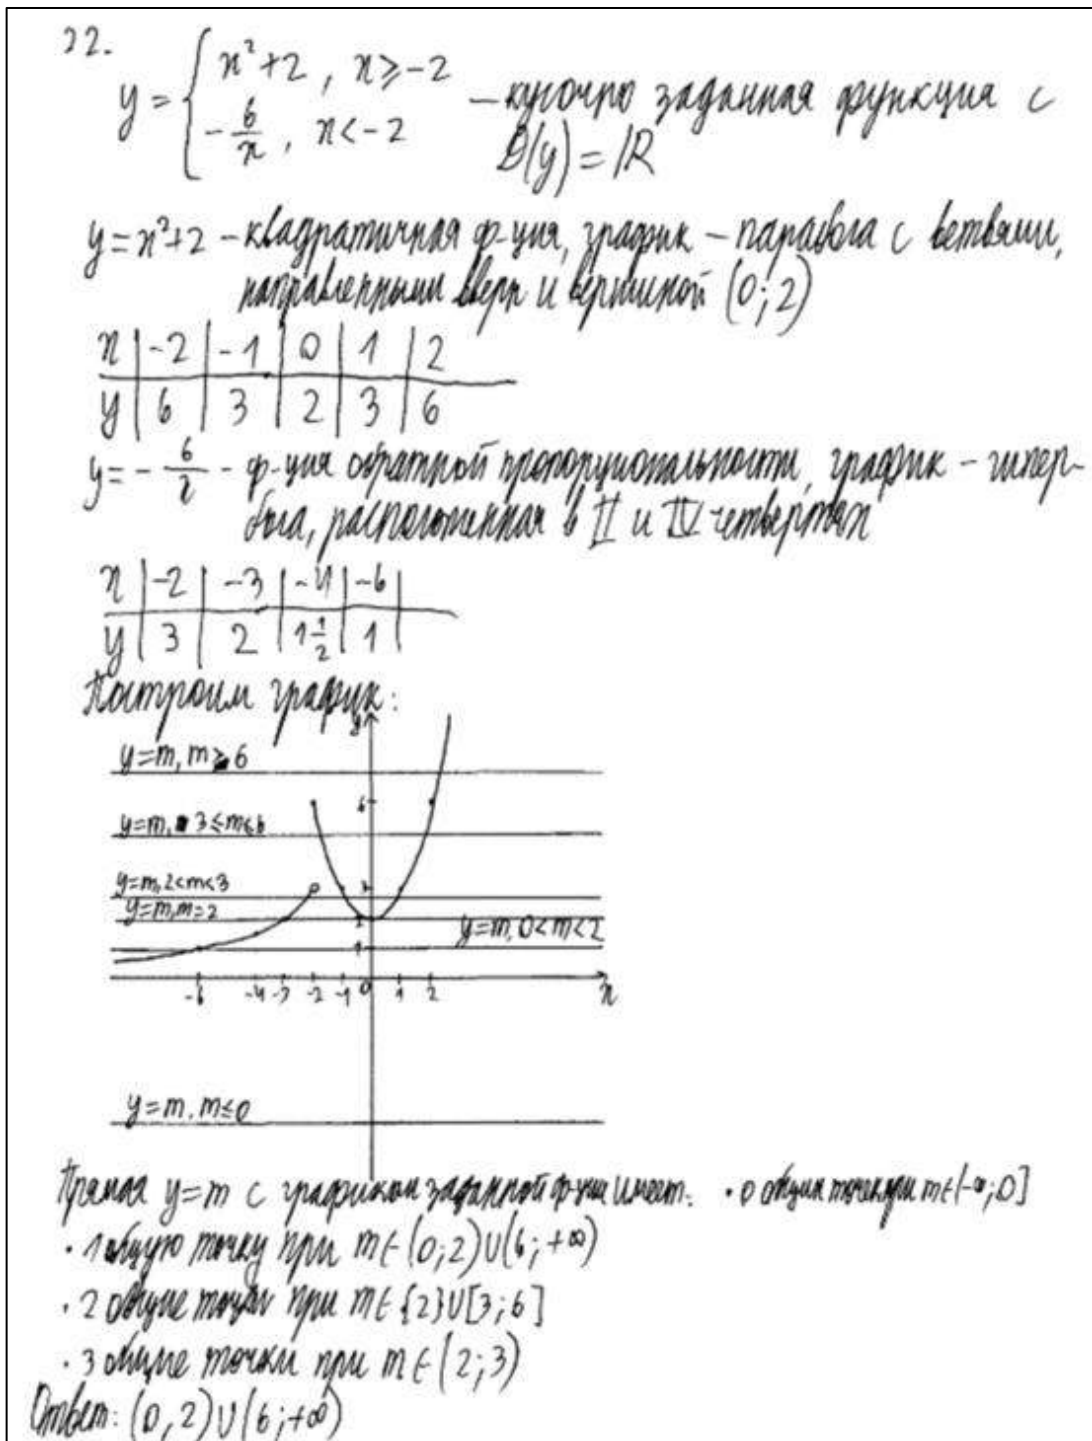 22.
y = { x²+2, x ≥ -2
-6/x, x < -2 – кусочно заданная функция с
D(y) = ℝ
y = x²+2 – квадратичная ф-ция, график – парабола с ветвями,
направленными вверх и вершиной (0; 2)
x | -2 | -1 | 0 | 1 | 2
y | 6 | 3 | 2 | 3 | 6
y = - 6/x - ф-ция обратной пропорциональности, график – гипер-
бола, расположенная в II и IV четвертях
x | -2 | -3 | -4 | -6 |
y | 3 | 2 | 1 1/2 | 1 |
Построим график:
y
y=m, m ≥ 6
6
y=m, 3 ≤ m ≤ 6
y=m, 2<m<3
3
y=m, m=2
2
y=m, 0<m<2
1
-6 -4 -3 -2 -1 0 1 2 x
y=m, m ≤ 0
Прямая y=m с графиком заданной ф-ции имеет: • 0 общих точек при m ∈ (-∞; 0]
• 1 общую точку при m ∈ (0; 2) ∪ (6; +∞)
• 2 общие точки при m ∈ {2} ∪ [3; 6]
• 3 общие точки при m ∈ (2; 3)
Ответ: (0, 2) ∪ (6; +∞)